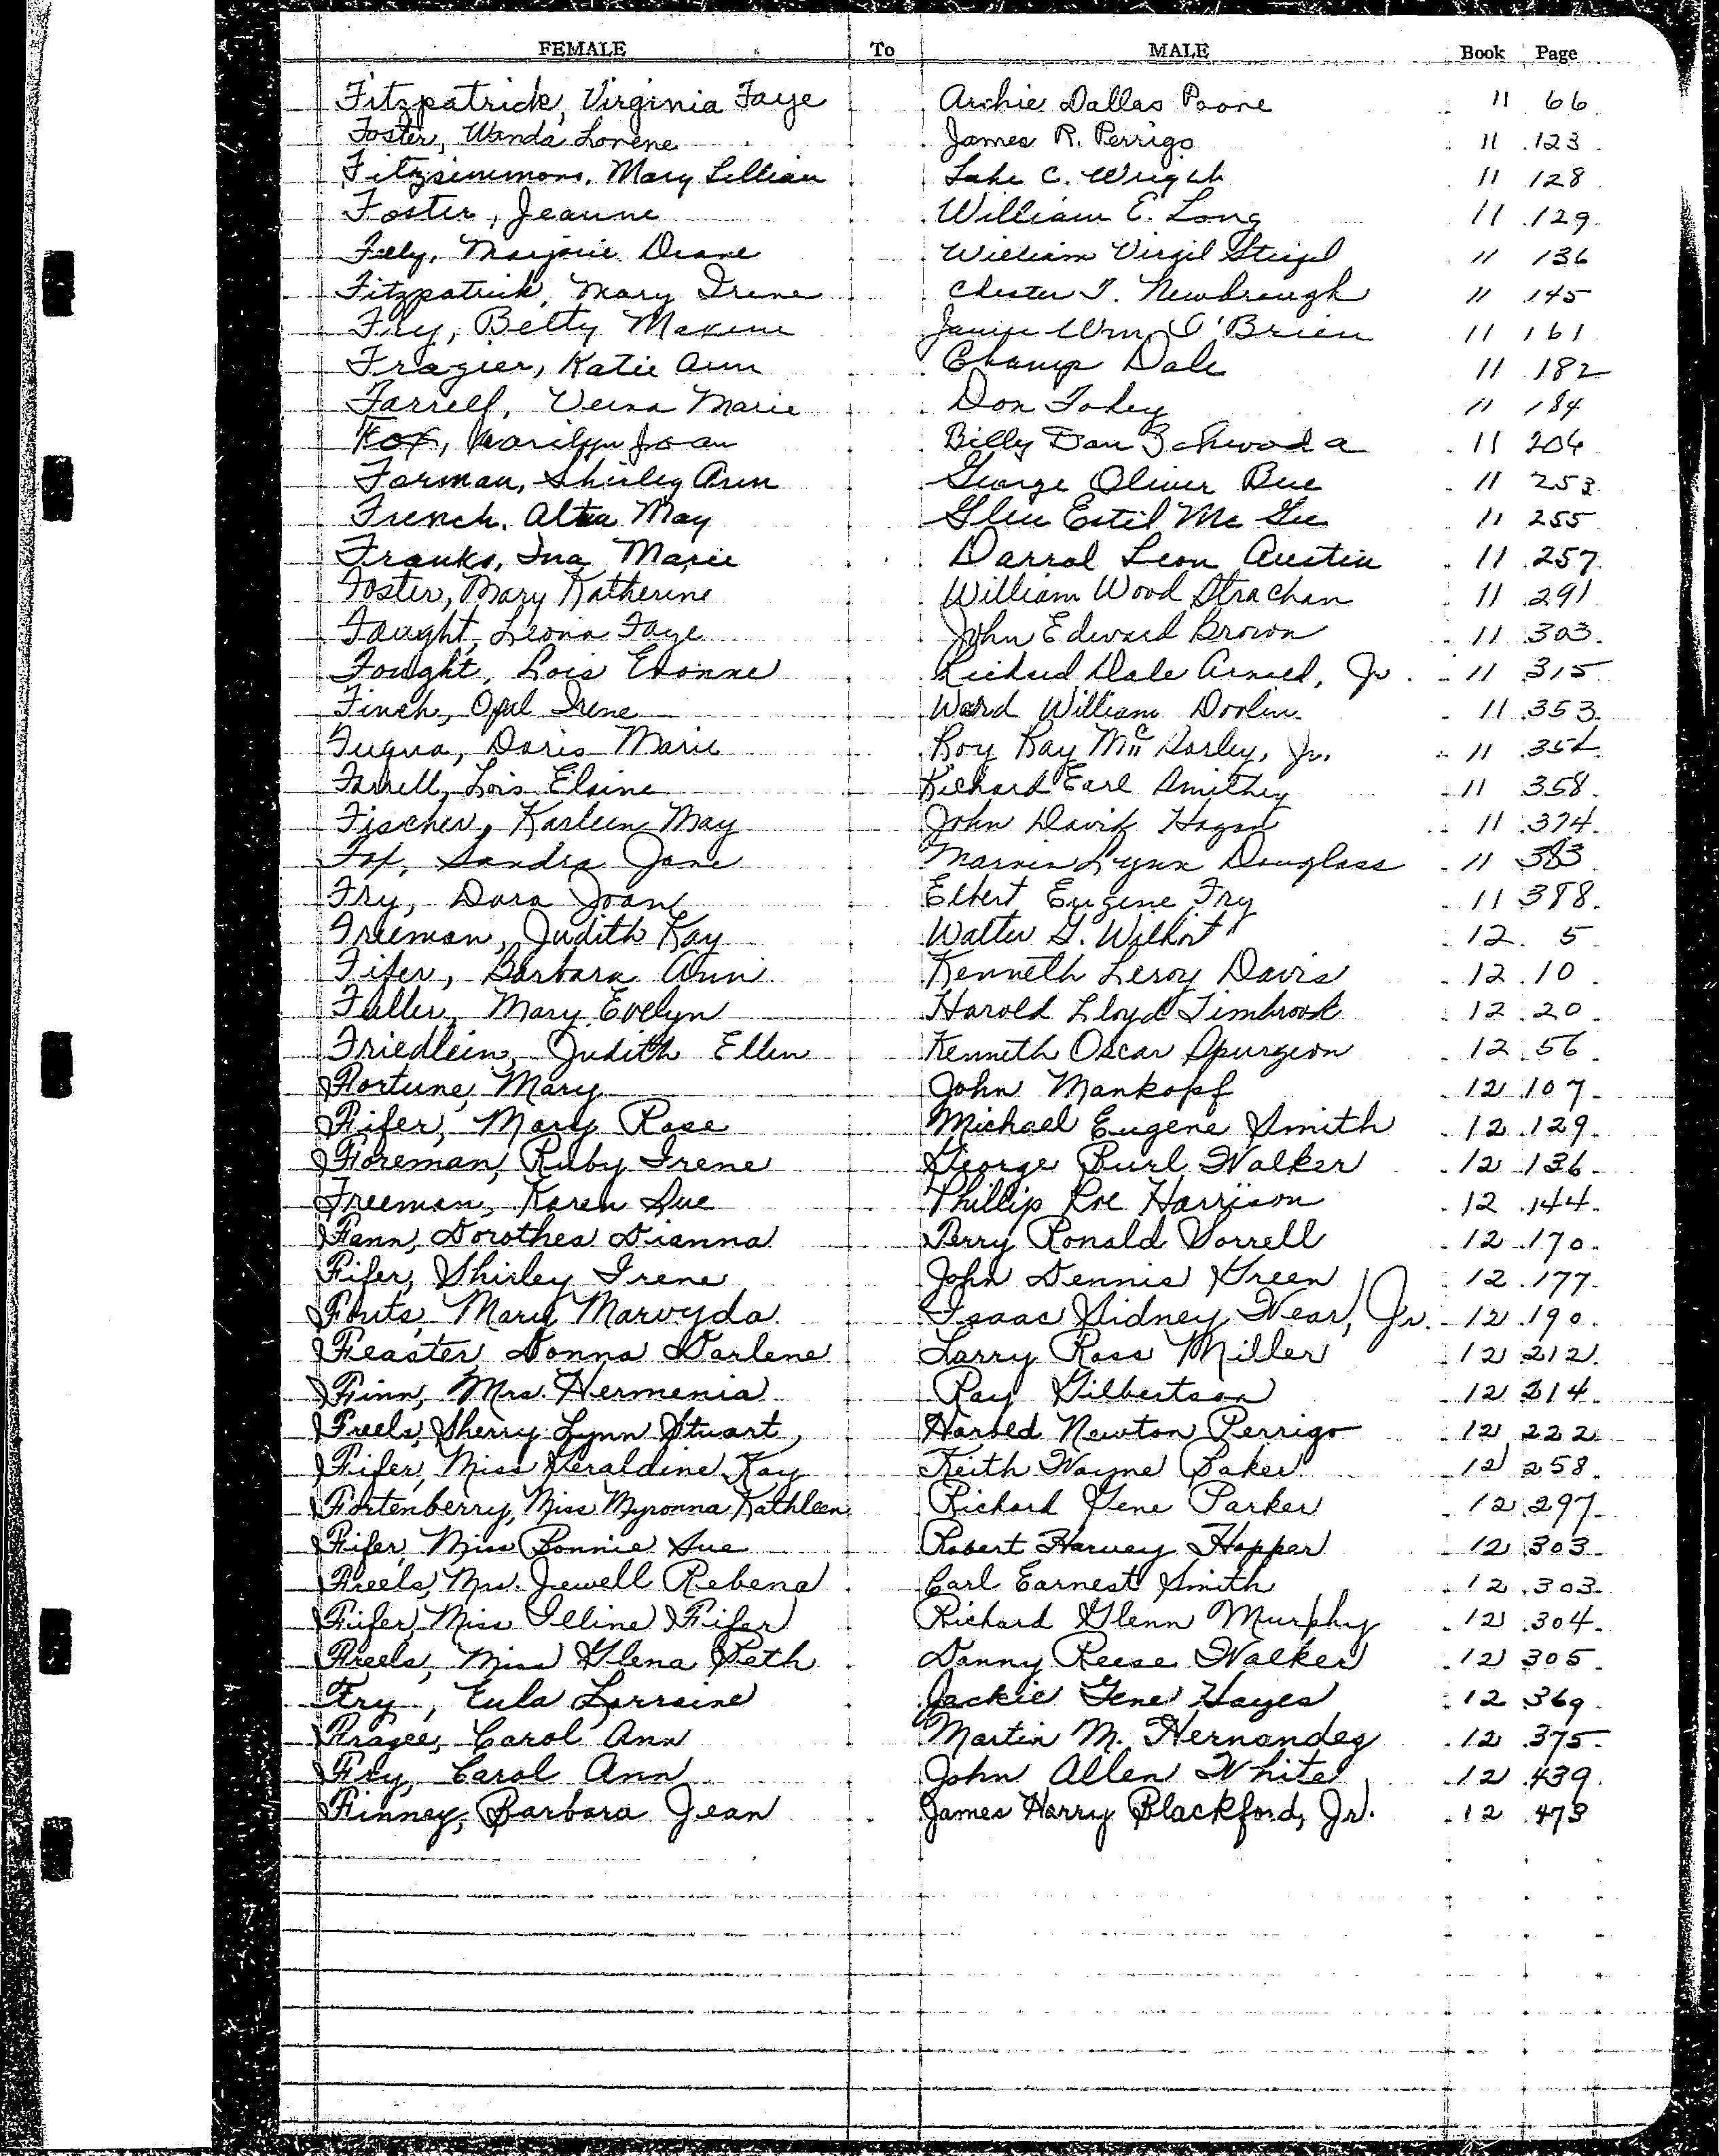 FEMALE To MALE Book Page
Fitzpatrick, Virginia Faye Archie Dallas Poore 11 66
Foster, Wanda Lorene James R. Perrigo 11 123
Fitzsimmons, Mary Lillian Luke C. Wright 11 128
Foster, Jeanne William E. Long 11 129
Marjorie Deane William Virgil 11 136
Fitzpatrick, Mary Irene Chester T. Newbrough 11 145
Fry, Betty Maxine James Wm O'Brien 11 161
Frazier, Katie Ann Champ Dale 11 182
Farrell, Verna Marie Don Fahey 11 184
Fox, Marilyn Joan Billy Dan 11 206
Forman, Shirley Ann George Oliver Bue 11 253
French, Alta May Glen Estil Mc Gee 11 255
Franks, Ina Marie Darrol Leon Austin 11 257
Foster, Mary Katherine William Wood Strachan 11 291
Fought, Leona Faye John Edward Brown 11 303
Fought, Lois Evonne Richard Dale Arnold, Jr. 11 315
Finch, Opal Irene Ward William Doolin 11 353
Fuqua, Doris Marie Roy Ray Jr. 11
Farrell, Lois Elaine Richard Earl Smithey 11 358
Fischer, Karleen May John David Hogan 11 374
Fox, Sandra Jane Marvin Lynn Douglass 11 383
Fry, Dora Joan Elbert Eugene Fry 11 388
Freeman, Judith Kay Walter G. Wilhoit 12 5
Fifer, Barbara Ann Kenneth Leroy Davis 12 10
Fuller, Mary Evelyn Harold Lloyd Timbrook 12 20
Friedlein, Judith Ellen Kenneth Oscar Spurgeon 12 56
Fortune, Mary John Mankopf 12 107
Fifer, Mary Rose Michael Eugene Smith 12 129
Foreman, Ruby Irene George Burl Walker 12 136
Freeman, Karen Sue Phillip Roe Harrison 12 144
Fann, Dorothea Dianna Perry Ronald Sorrell 12 170
Fifer, Shirley Irene John Dennis Green 12 177
Fouts, Mary Marvyda Isaac Sidney Wear, Jr. 12 190
Feaster, Donna Darlene Larry Ross Miller 12 212
Finn, Mrs. Hermenia Ray Gilbertson 12 214
Freels, Sherry Lynn Stuart, Harold Newton Perrigo 12 222
Fifer, Miss Geraldine Kay Keith Wayne Baker 12 258
Fortenberry, Miss Myronna Kathleen Richard Gene Parker 12 297
Fifer, Miss Bonnie Sue Robert Harvey Hopper 12 303
Freels, Mrs. Jewell Rebena Carl Earnest Smith 12 303
Fifer, Miss Illine Fifer Richard Glenn Murphy 12 304
Freels, Miss Glena Beth Danny Reese Walker 12 305
Fry, Eula Lorraine Jackie Gene Hayes 12 369
Fragee, Carol Ann Martin M. Hernandez 12 375
Fry, Carol Ann John Allen White 12 439
Finney, Barbara Jean James Harry Blackford, Jr. 12 473